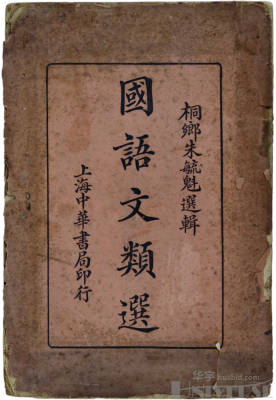 桐鄉朱毓魁選輯
國語文類選
上海中華書局印行
华宇 huabid.com